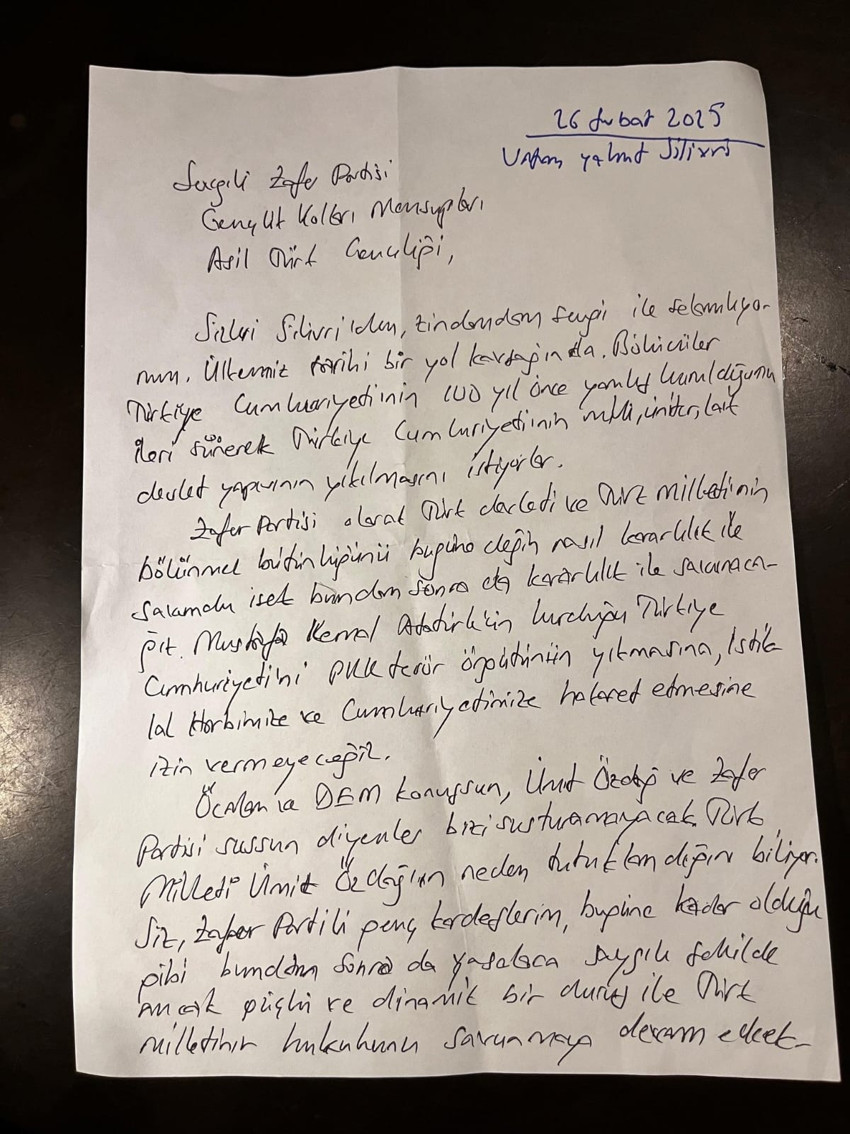 26 Şubat 2025
Vatan yahut Silivri
Sevgili Zafer Partisi
Gençlik Kolları Mensupları
Asil Türk Gençliği,
Sizleri Silivri'den, zindandan sevgi ile selamlıyo-
rum. Ülkemiz tarihi bir yol kavşağında. Bölücüler
Türkiye Cumhuriyeti'nin 100 yıl önce yanlış kurulduğunu
ileri sürerek Türkiye Cumhuriyetinin milli, üniter, laik
devlet yapısının yıkılmasını istiyorlar.
Zafer Partisi olarak Türk devleti ve Türk milletinin
bölünmez bütünlüğünü bugüne değin nasıl kararlılık ile
isek bundan sonra da kararlılık ile savunaca-
ğız. Mustafa Kemal Atatürk'ün kurduğu Türkiye
Cumhuriyeti'ni PKK terör örgütünün yıkmasına, İstik-
lal Harbimize ve Cumhuriyetimize hakaret etmesine
izin vermeyeceğiz.
Öcalan ve DEM konuşsun, Ümit Özdağ ve Zafer
Partisi sussun diyenler bizi susturamayacak. Türk
Milleti Ümit Özdağ'ın neden tutuklandığını biliyor.
Siz, Zafer Partili genç kardeşlerim, bugüne kadar olduğu
gibi bundan sonra da yasalara saygılı şekilde
ancak güçlü ve dinamik bir duruş ile Türk
milletinin hukukunu savunmaya devam edecek-